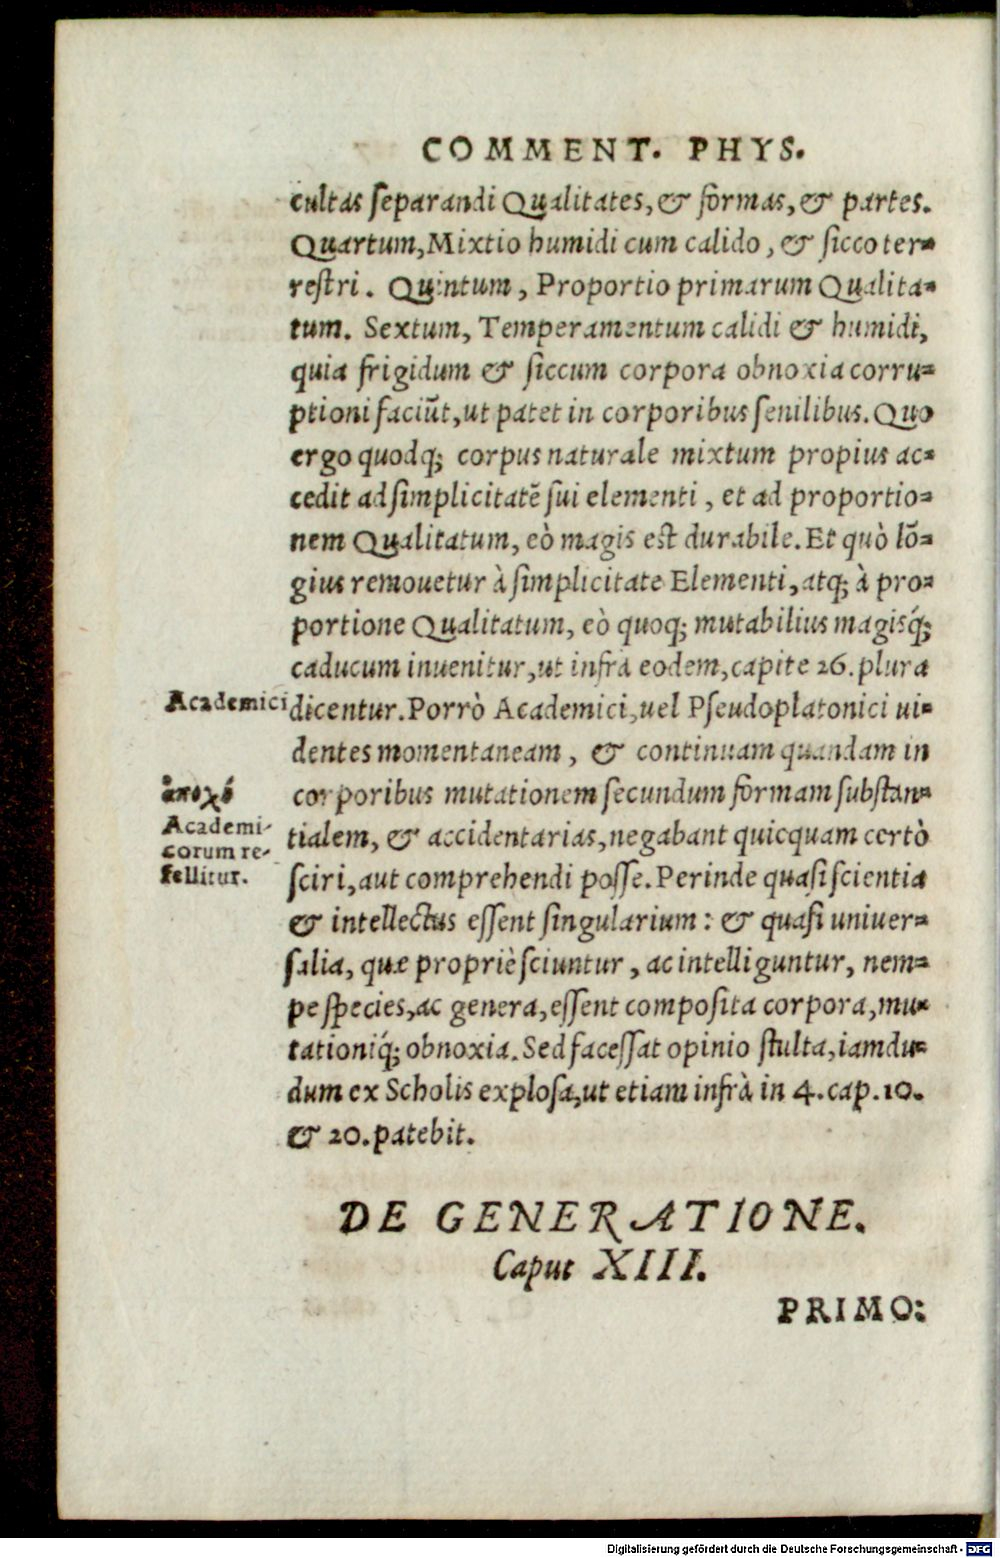 COMMENT. PHYS.
cultas ſeparandi Qualitates, & formas, & partes.
Quartum, Mixtio humidi cum calido, & ſicco ter-
reſtri. Quintum, Proportio primarum Qualita-
tum. Sextum, Temperamentum calidi & humidi,
quia frigidum & ſiccum corpora obnoxia corru-
ptioni faciũt, ut patet in corporibus ſenilibus. Quo
ergo quodq; corpus naturale mixtum propius ac-
cedit ad ſimplicitatẽ ſui elementi, et ad proportio-
nem Qualitatum, eò magis eſt durabile. Et quò lõ-
gius remouetur à ſimplicitate Elementi, atq; à pro-
portione Qualitatum, eò quoq; mutabilius magisq́;
caducum inuenitur, ut infra eodem, capite 26. plura
Academici
dicentur. Porrò Academici, uel Pſeudoplatonici ui-
dentes momentaneam, & continuam quandam in
corporibus mutationem ſecundum formam ſubſtan-
Academi-
corum re-
fellitur.
tialem, & accidentarias, negabant quicquam certò
ſciri, aut comprehendi poſſe. Perinde quaſi ſcientia
& intellectus eſſent ſingularium: & quaſi uniuer-
ſalia, quæ propriè ſciuntur, ac intelliguntur, nem-
pe ſpecies, ac genera, eſſent compoſita corpora, mu-
tationiq́; obnoxia. Sed faceſſat opinio ſtulta, iamdu-
dum ex Scholis exploſa, ut etiam infrà in 4. cap. 10.
& 20. patebit.
DE GENERATIONE.
Caput XIII.
PRIMO:
Digitalisierung gefördert durch die Deutsche Forschungsgemeinschaft - DFG